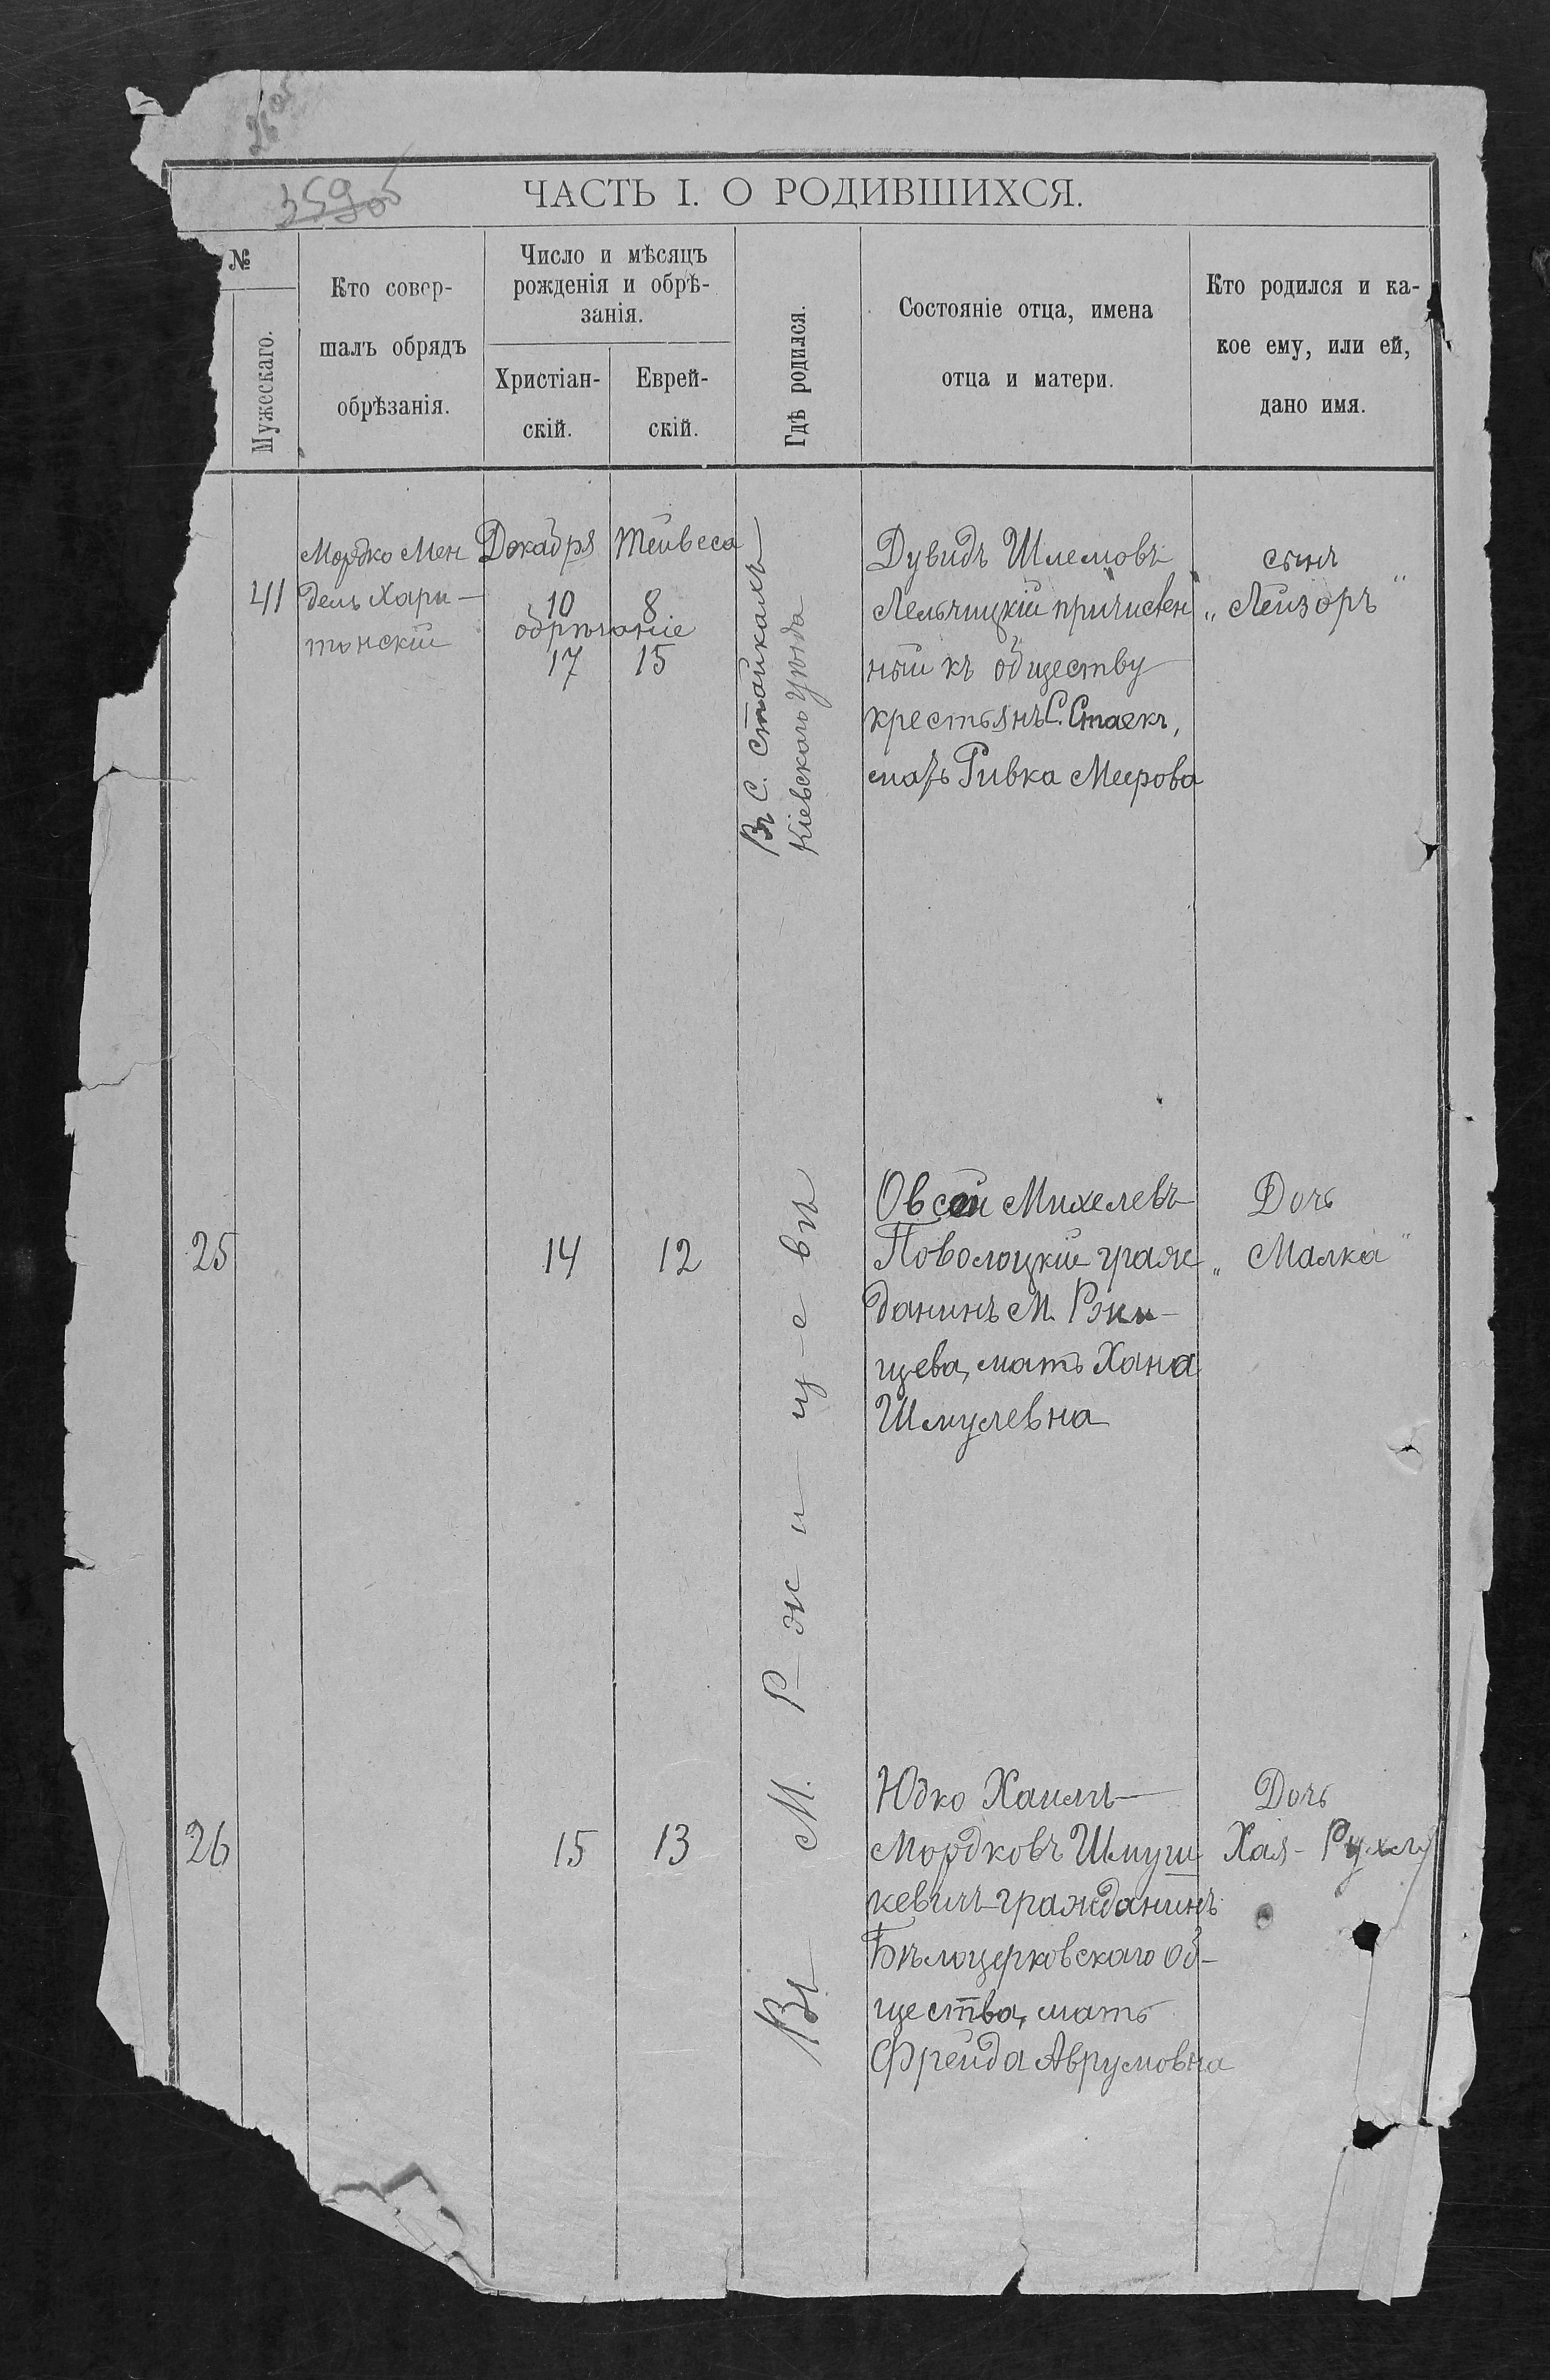 359об
ЧАСТЬ I. О РОДИВШИХСЯ.
№
Мужескаго.
Кто совер-
шалъ обрядъ
обрѣзанія.
Число и мѣсяцъ
рожденія и обрѣ-
занія.
Христіан-
скій.
Еврей-
скій.
Гдѣ родился.
Состояніе отца, имена
отца и матери.
Кто родился и ка-
кое ему, или ей,
дано имя.
41
Мордко Мен
дель Хари-
тонскій
Декабря
10
обрѣзаніе
17
Тейвеса
8
15
Въ С. Стайкахъ
Кіевскаго уѣзда
Дувидъ Шлемовъ
Лельчицкій причислен
ный къ обществу
крестьянъ С. Стаекъ,
мать Ривка Меерова
сынъ
„Лейзоръ"
25
14
12
Въ М. Ржищевѣ
Овсей Михелевъ
Поволоцкій граж
данинъ М. Ржи-
щева, мать Хана
Шмулевна
Дочь
„Малка"
26
15
13
Юдко Хаимъ
Мордковъ Шмуш
кевичъ гражданинъ
Бѣлоцерковскаго об-
щества, мать
Фрейда Аврумовна
Дочь
Хая-Рухля